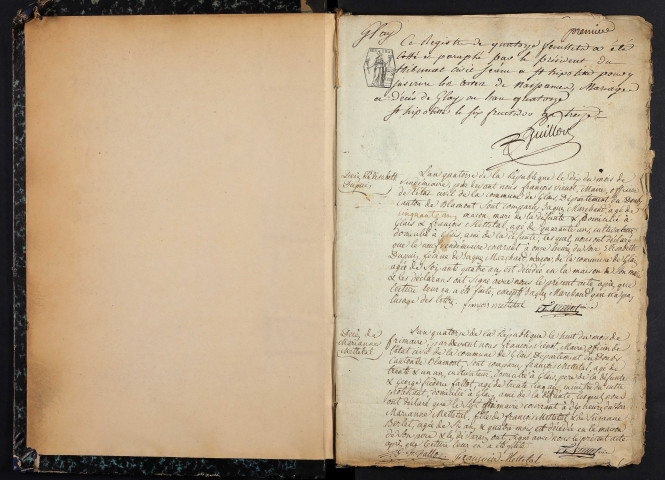 Glay
premier
Ce Registre de quatorze feuillets a été
Cotté et paraphé par le président du
tribunal civil séant a St hipolite pour y
inscrire les actes de naissance, Mariage
et décès de Glay en l'an quatorze
St hipolite le six fructidor an treize
Guillon
Décès Elisabeth
Dupui
L'an quatorze de la République le dix du mois de
vingemiaire, par devant nous françois vienot, Maire, officier
de l'état civil de la commune de Glais, Département du Doub
canton de Blamont, sont comparu, Jaque Marchand, agé de
cinquante an, maçon, mari de la défunte & domicilié à
Glais & françois Mettetal, agé de quarante an, cultivateur,
domicilié à Glais, ami de la défunte, lesquels nous ont déclaré
que le neuf vendemiaire courrant à onze heure du soir, Elisabeth
Dupui, femme de Jaque Marchand, maçon, de la commune de Glai,
agée de soixante quatre an, est décédée en la maison de son mari
& les déclarans ont signé avec nous le présent acte après que
lecture leur en a été faite, excepté Jaque Marchand qui n'a pas
l'usage des lettre. françois mettetal
Décès de
Marianne
Mettetal
L'an quatorze de la République le huit du mois de
frimaire, par devant nous françois vienot, Maire, officier de
l'état civil de la commune de Glais, Département du Doub,
canton de Blamont, sont comparu françois Mettetal, agé de
trente & un an, cultivateur, domicilié à Glais, père de la défunte
& George frederic fallot, agé de trente cinq an, ministre du culte
protestant, domicilié à Glay, ami de la défunte, lesquels nous
ont déclaré que le sept frimaire courrant à dix heure du soir
Marianne Mettetal, fille de françois Mettetal & de
agée de six an & quatre mois est décédée en la maison
de son père & les déclarans ont signé avec nous le présent acte
après que lecture leur en a été faite
G. f. fallot françois Mettetal